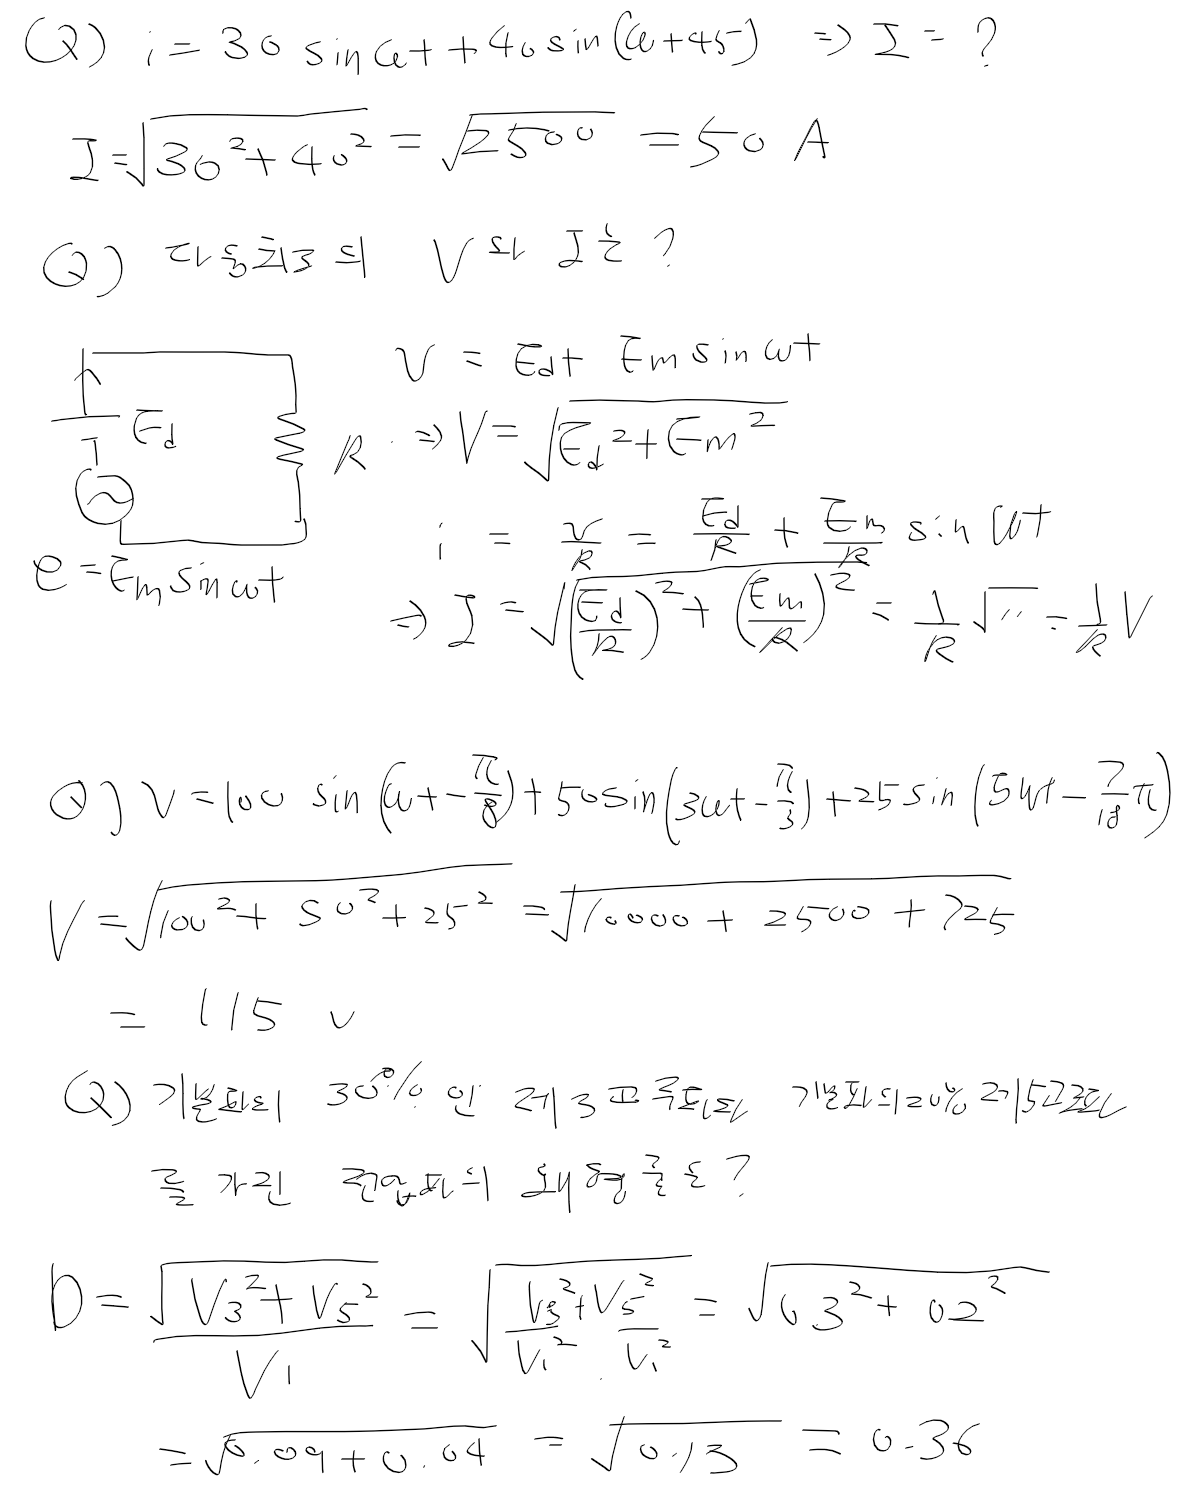 Q) i = 30 sin ωt + 40 sin (ω+45) => I = ?
I = √(30² + 40²) = √2500 = 50 A
Q) 다음회로의 V와 I는?
v = Ed + Em sin ωt
Ed
R => V = √(Ed² + Em²)
i = v/R = Ed/R + Em/R sin ωt
e = Em sin ωt
=> I = √((Ed/R)² + (Em/R)²) = 1/R √〃 = 1/R V
Q) V = 100 sin (ωt - π/8) + 50 sin (3ωt - π/3) + 25 sin (5ωt - 7/18 π)
V = √(100² + 50² + 25²) = √(10000 + 2500 + 725)
= 115 v
Q) 기본파의 30% 인 제3고주파와 기본파의 20% 제5고조파
를 가진 전압파의 왜형률은?
D = √(V3² + V5²) / V1 = √(V3²/V1² + V5²/V1²) = √(03² + 02²)
= √(0.09 + 0.04) = √0.13 = 0.36